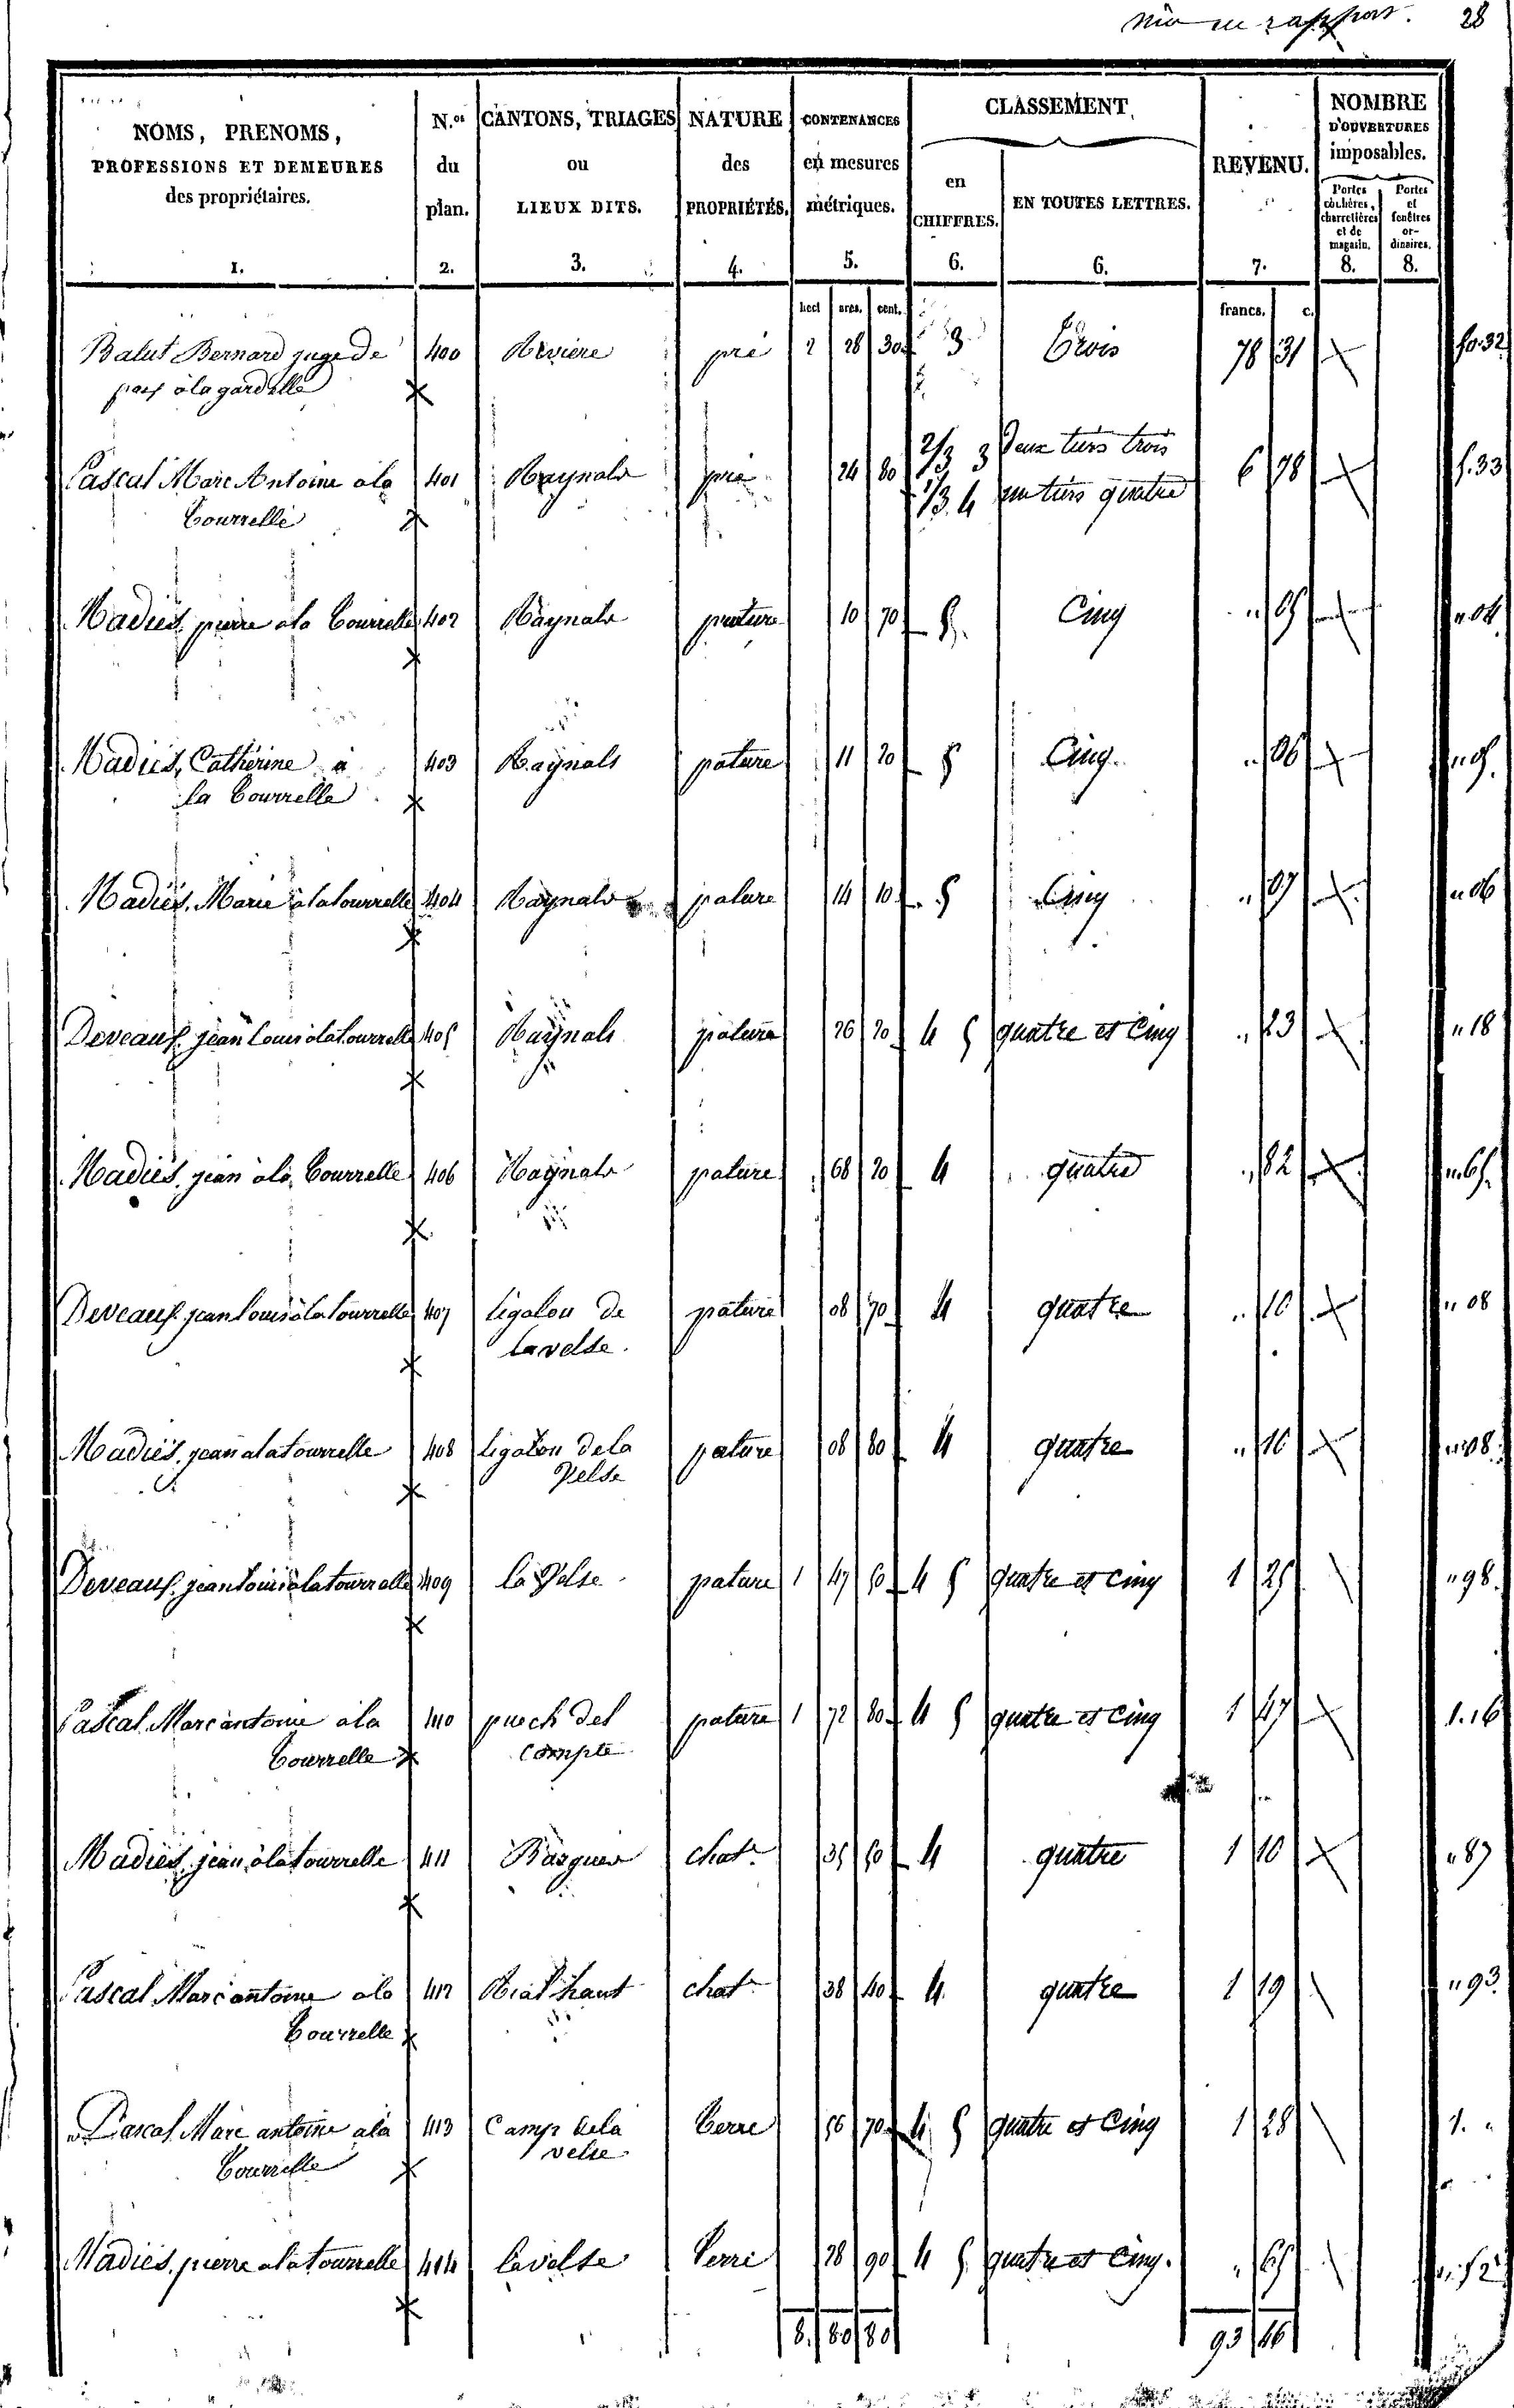 28
NOMS, PRENOMS, PROFESSIONS ET DEMEURES des propriétaires. 1.
N.os du plan. 2.
CANTONS, TRIAGES ou LIEUX DITS. 3.
NATURE des PROPRIÉTÉS. 4.
CONTENANCES en mesures métriques. 5.
CLASSEMENT.
en CHIFFRES. 6.
EN TOUTES LETTRES. 6.
REVENU. 7.
NOMBRE D'OUVERTURES imposables.
Portes cochères, charretières et de magasin. 8.
Portes et fenêtres ordinaires. 8.
hect ares. cent. francs. c.
Balut Bernard juge de 400 Riviere pré 2 28 30 3 Trois 78 31 fo. 32
paix à la gardelle
2/3 3 Deux tiers trois
Pascal Marc Antoine a la 401 Raynals pré 24 80 6 78 f. 33
Tourrelle 1/3 4 un tiers quatre
Madiès, pierre a la Tourrelle 402 Raynals pature 10 70 5 Cinq " 05 " 04
Madiès, Catherine à 403 Raynals pature 11 20 5 Cinq " 06 " 05
la Tourrelle
Madiès, Marie à la tourrelle 404 Raynals pature 14 10 5 Cinq " 07 " 06
Deveaux jean Louis à la tourrelle 405 Raynals pature 26 20 4 5 quatre et Cinq " 23 " 18
Madiès, jean à la Tourrelle 406 Raynals pature 68 20 4 quatre " 82 " 65
Deveaux jean louis à la tourrelle 407 ligalou de pature 08 70 4 quatre " 10 " 08
la velse.
Madiès, jean a la tourrelle 408 ligalou de la pature 08 80 4 quatre " 10 " 08
Velse
Deveaux jean louis à la tourrelle 409 la Velse pature 1 47 50 4 5 quatre et cinq 1 25 " 98
Pascal Marc antoine à la 410 puech del pature 1 72 80 4 5 quatre et Cinq 1 47 1. 16
Tourrelle Compte
Madiès, jean à la tourrelle 411 chat. 35 50 4 quatre 1 10 " 87
Pascal Marc antoine a la 412 chat. 38 40 4 quatre 1 19 " 93
Tourrelle
Pascal Marc antoine a la 413 Camp de la Terre 56 70 4 5 quatre et Cinq 1 28 1. "
Tourrelle velse
Madiès, pierre a la tourrelle 414 la velse Terre 28 90 4 5 quatre et Cinq. " 65 " 52
8. 80 80 93 46